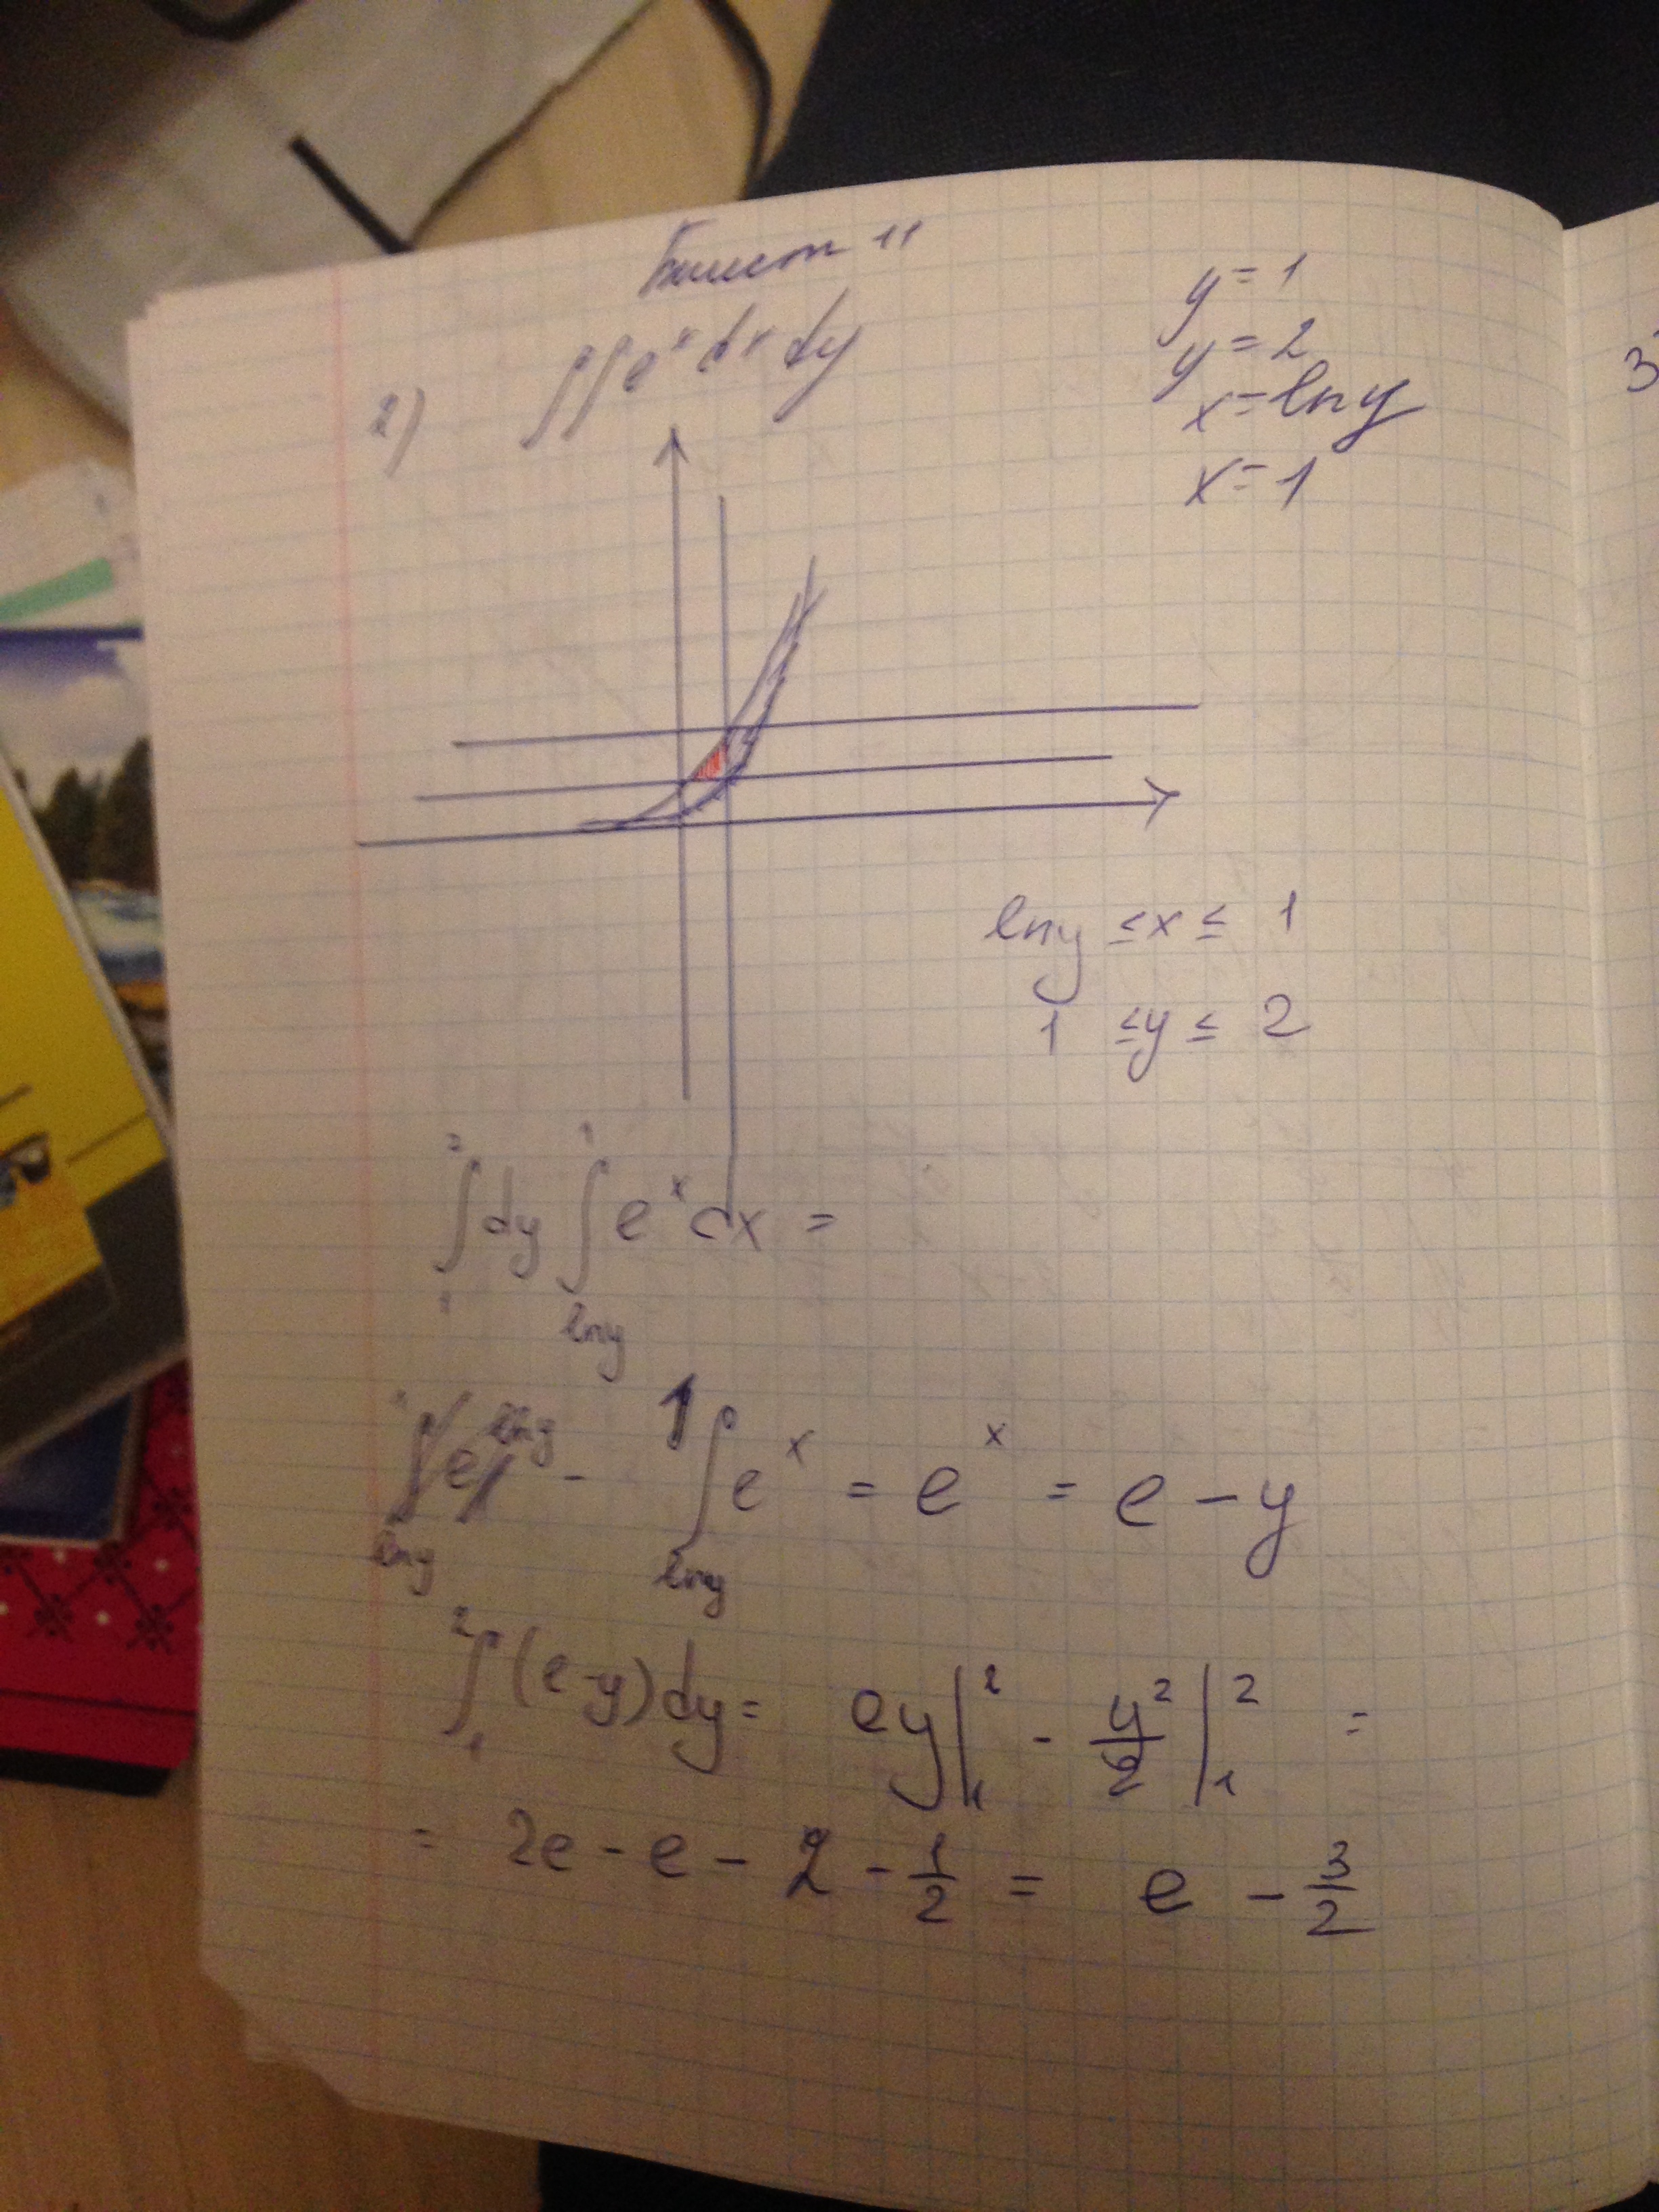 Билет 11
2) ∬e^x dx dy
y = 1
y = 2
x = ln y
x = 1
ln y ≤ x ≤ 1
1 ≤ y ≤ 2
∫_1^2 dy ∫_{ln y}^1 e^x dx =
∫_{ln y}^1 e^x = e^x = e - y
∫_1^2 (e-y)dy = ey|_1^2 - y^2/2|_1^2 =
= 2e - e - 2 - 1/2 = e - 3/2
3